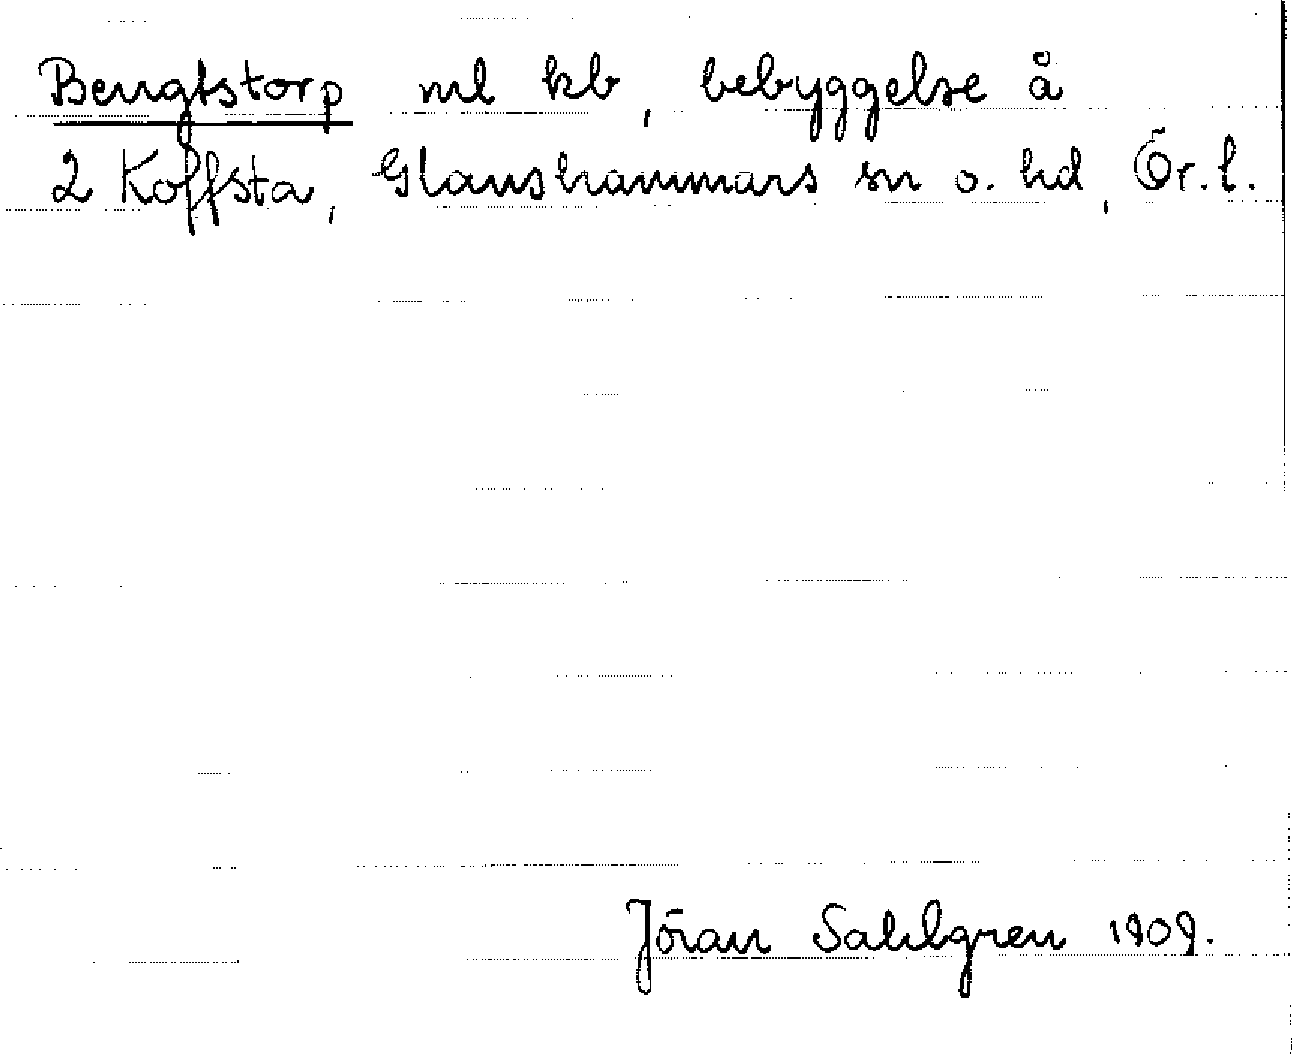 Bengtstorp ml kb, bebyggelse å
2 Koffsta, Glanshammars sn o. hd, Ör. l.
Jöran Sahlgren 1909.